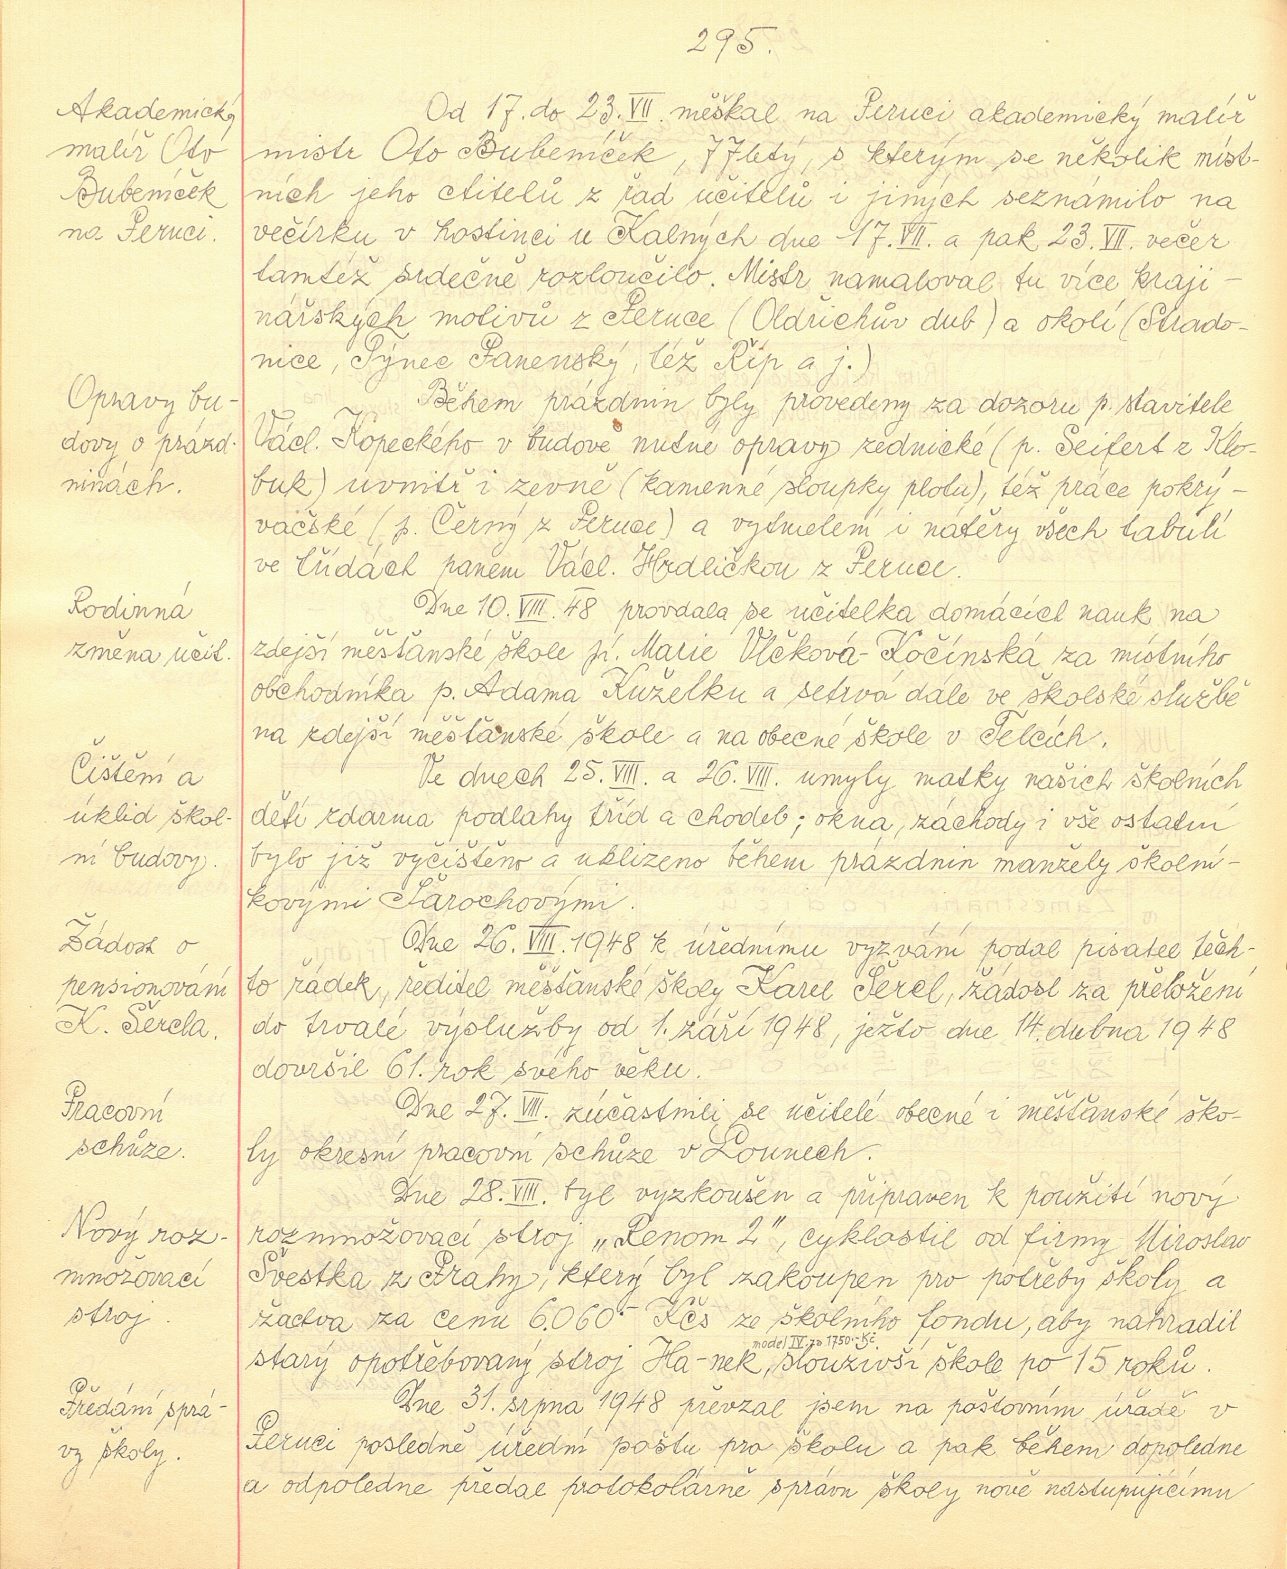 295.
Akademický
malíř Oto
Bubeníček
na Peruci.
Od 17. do 23. VII. měškal na Peruci akademický malíř
mistr Oto Bubeníček, 77letý, s kterým se několik míst-
ních jeho ctitelů z řad učitelů i jiných seznámilo na
večírku v hostinci u Kalných dne 17. VII. a pak 23. VII. večer
tamtéž srdečně rozloučilo. Mistr namaloval tu více kraji-
nářských motivů z Peruce (Oldřichův dub) a okolí (Strado-
nice, Týnec Panenský, též Říp a j.)
Opravy bu-
dovy o prázd-
ninách.
Během prázdnin byly provedeny za dozoru p. stavitele
Václ. Kopeckého v budově nutné opravy zednické (p. Seifert z Klo-
buk) uvnitř i zevně (kamenné sloupky plotu), též práce pokrý-
vačské (p. Černý z Peruce) a vytmelení i nátěry všech tabulí
ve třídách panem Václ. Hrdličkou z Peruce.
Rodinná
změna učit.
Dne 10. VIII. 48 provdala se učitelka domácích nauk na
zdejší měšťanské škole pí. Marie Vlčková-Kočínská za místního
obchodníka p. Adama Kuželku a setrvá dále ve školské službě
na zdejší měšťanské škole a na obecné škole v Telcích.
Čištění a
úklid škol-
ní budovy.
Ve dnech 25. VIII. a 26. VIII. umyly matky našich školních
dětí zdarma podlahy tříd a chodeb; okna, záchody i vše ostatní
bylo již vyčištěno a uklizeno během prázdnin manžely školní-
kovými Šarochovými.
Žádost o
pensionování
K. Šercla.
Dne 26. VIII. 1948 k úřednímu vyzvání podal pisatel těch-
to řádek, ředitel měšťanské školy Karel Šercl, žádost za přeložení
do trvalé výslužby od 1. září 1948, ježto dne 14. dubna 1948
dovršil 61. rok svého věku.
Pracovní
schůze.
Dne 27. VIII. zúčastnili se učitelé obecné i měšťanské ško-
ly okresní pracovní schůze v Lounech.
Nový roz-
množovací
stroj.
Dne 28. VIII. byl vyzkoušen a připraven k použití nový
rozmnožovací stroj „Renom 2", cyklostil od firmy Miroslav
Švestka z Prahy, který byl zakoupen pro potřeby školy a
žactva za cenu 6.060.- Kčs ze školního fondu, aby nahradil
model IV. za 1750.- Kč
starý opotřebovaný stroj Ha-nek, sloužívší škole po 15 roků.
Předání sprá-
vy školy.
Dne 31. srpna 1948 převzal jsem na poštovním úřadě v
Peruci posledně úřední poštu pro školu a pak během dopoledne
a odpoledne předal protokolárně správu školy nově nastupujícímu